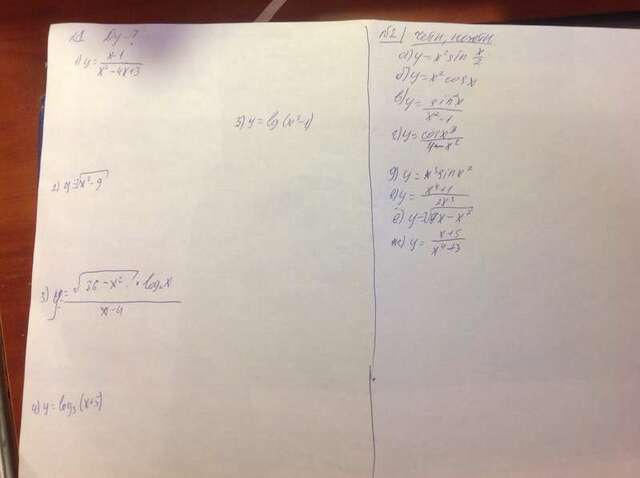 №1 Dy-?
1) y = x-1 / x²-4x+3
2) y = √x²-9
3) y = √36-x² · log₂x / x-4
4) y = log₃(x+5)
5) y = lg(x²-1)
№2 четн, нечетн
а) y = x² sin x/2
б) y = x² cos x
в) y = sin²x / x²-1
г) y = cos x³ / 4-x²
д) y = x³ sin x²
е) y = x⁴+1 / 2x³
ё) y = x - x²
ж) y = x+5 / x⁴+3